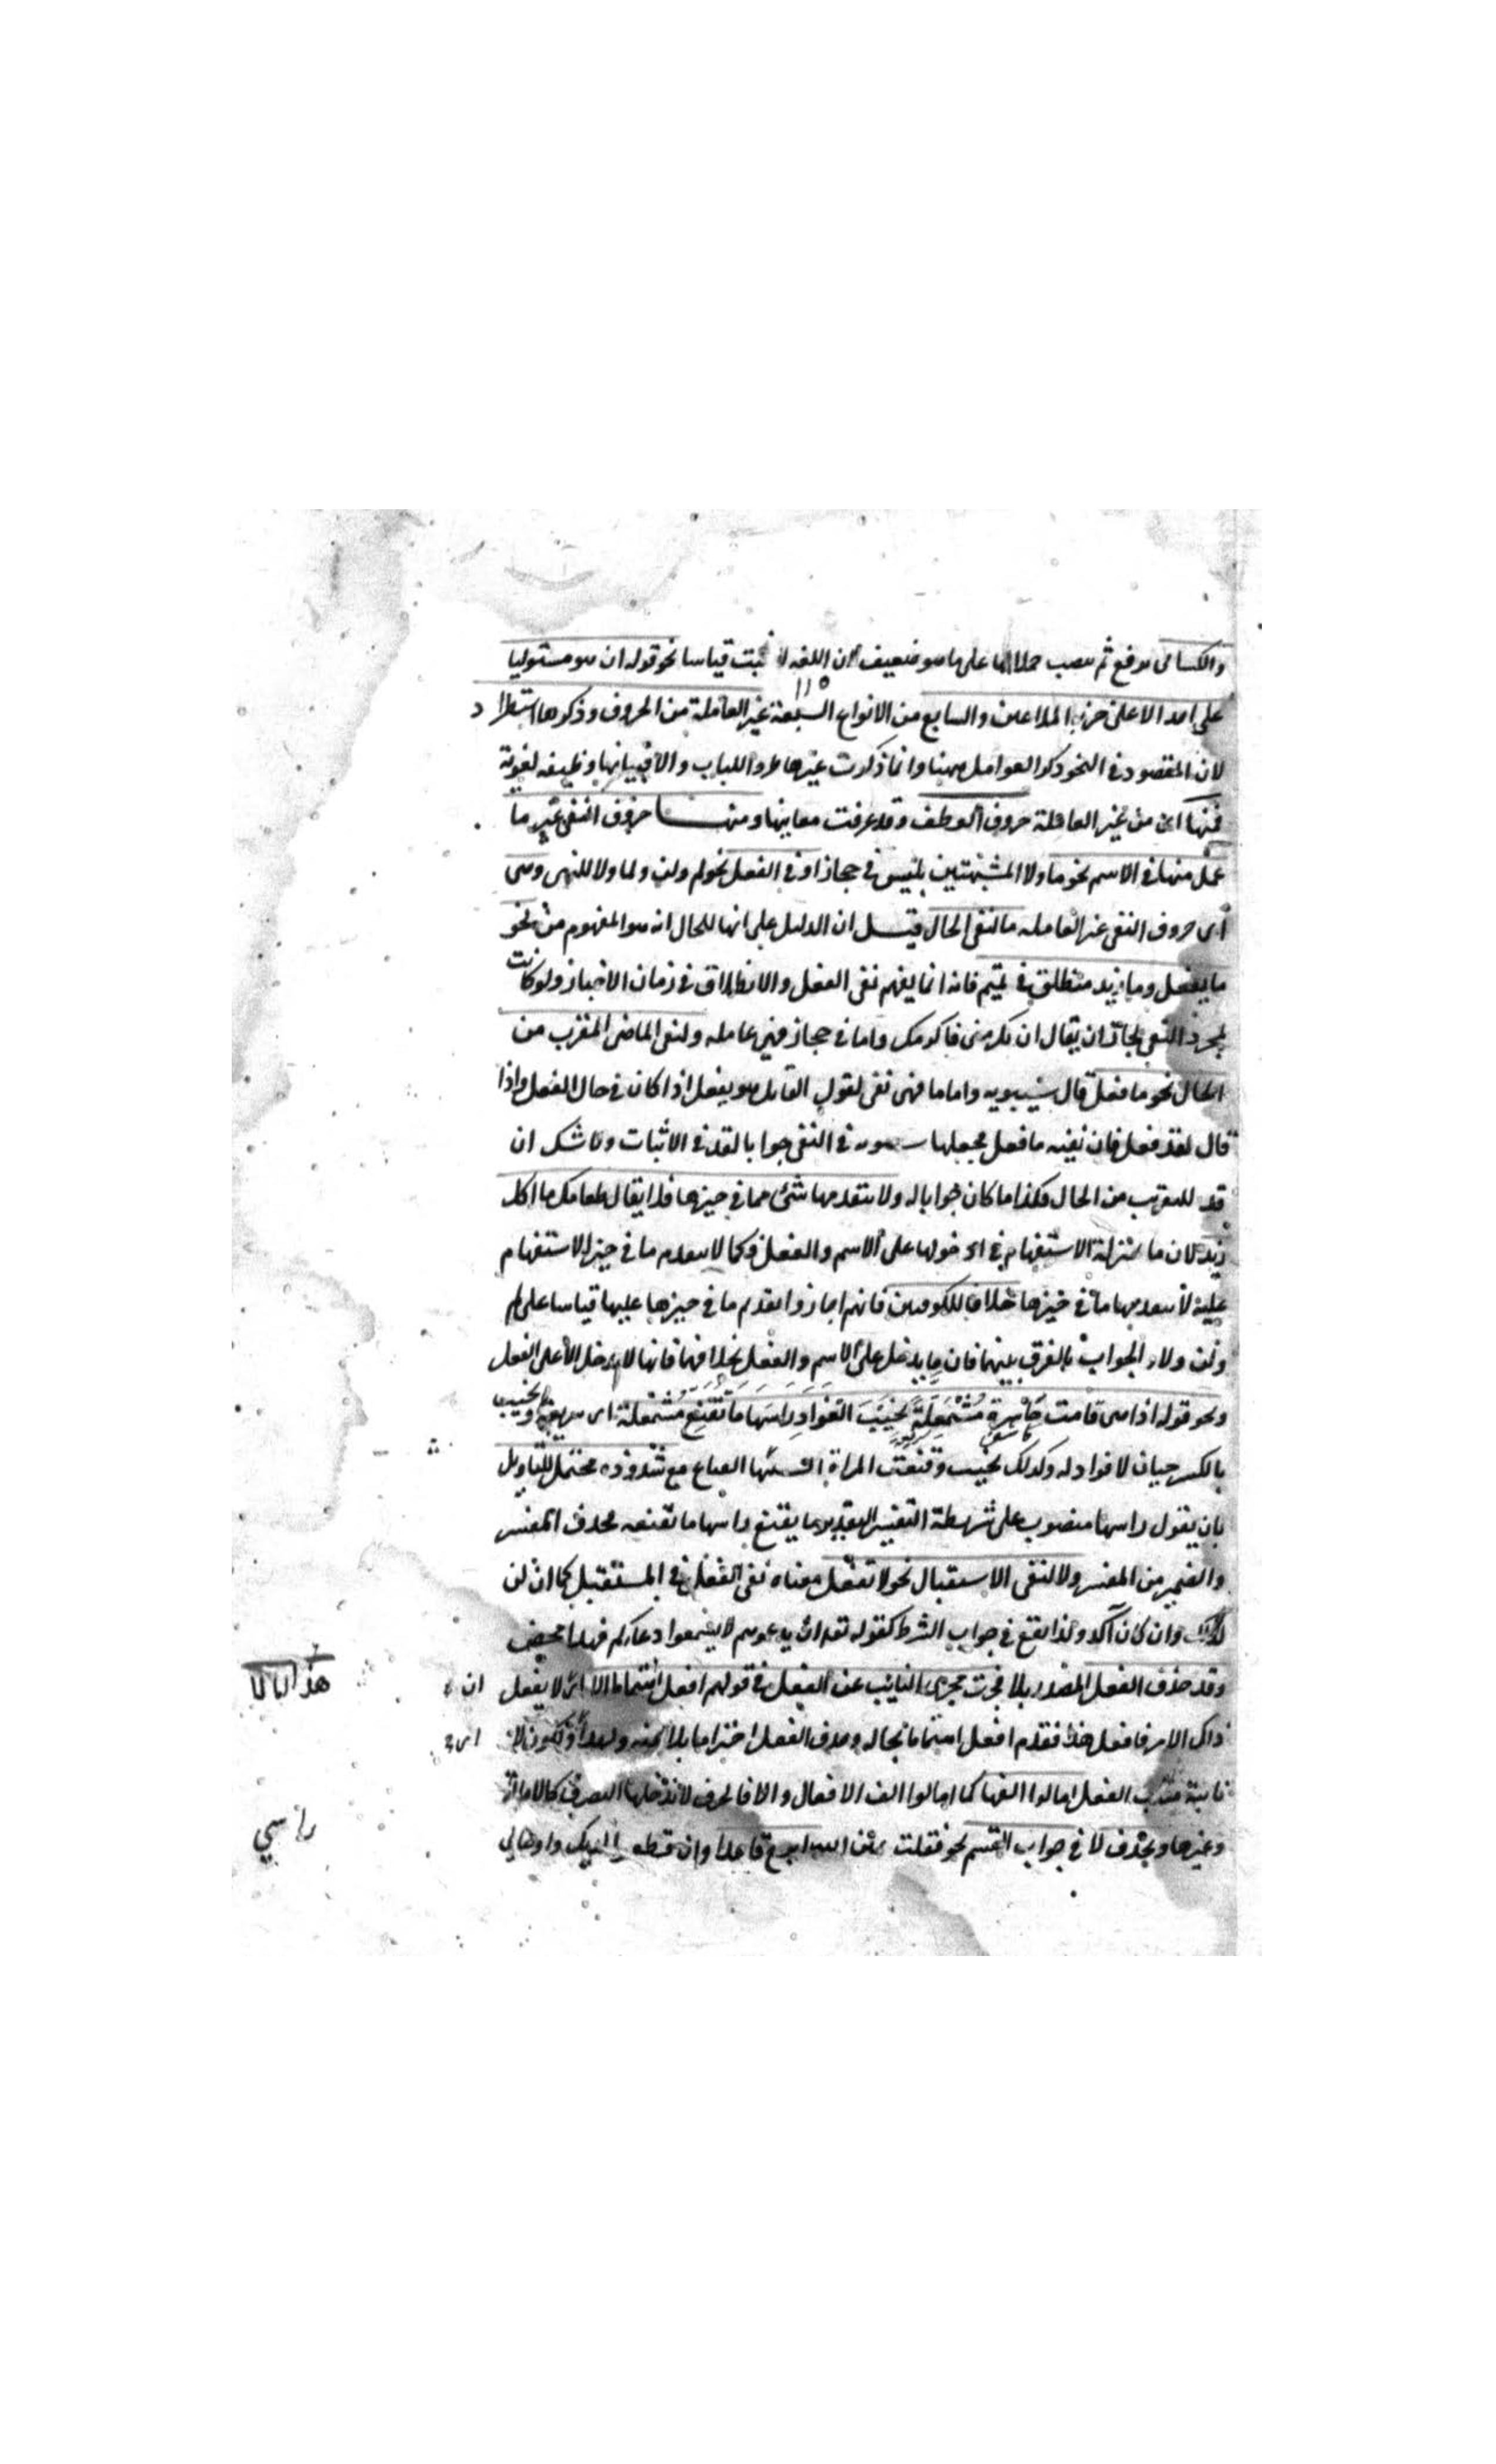 والكسائى يرفع ثم ينصب حملا لها على ما هو ضعيف لان اللغه لا تثبت قياسا نحو قوله ان هو مستوليا
على احد الا على حزبه الملاعين والسابع من الانواع السبعة غير العاملة من الحروف وذكرها استطراد
لان المقصود فى النحو ذكر العوامل ههنا وانما ذكرت غيرها طردا للباب والا فبيانها وظيفه لغوية
فمنها اى من غير العاملة حروف العطف وقد عرفت معاينها ومنها حروف النفى غير ما
عمل منها فى الاسم نحو ما ولا المشبهتين بليس فى حجاز او فى الفعل نحو لم ولن ولما ولا للنهى وهى
اى حروف النفى غير العامله ما لنفى الحال قيل ان الدليل على انها للحال انه هو المفهوم من نحو
ما يفعل وما زيد منطلق فى تميم فانه انما يفهم نفى الفعل والانطلاق فى زمان الاخبار ولو كانت
لمجرد النفى لجاز ان يقال ان تكرمنى فاكرمك واما فى حجاز فهى عامله ولنفى الماضى المقرب من
الحال نحو ما فعل قال سيبويه واما ما فهى نفى لقول القايل هو يفعل اذا كان فى حال الفعل واذا
قال لقد فعل فان نفيه ما فعل فجعلها سيبويه فى النفى جوابا لقد فى الاثبات ولا شك ان
قد للتقريب من الحال فكذا ما كان جوابا له ولا يتقدمها شئ مما فى حيزها فلا يقال طعامك ما اكل
زيد لان ما بمنزلة الاستفهام فى دخولها على الاسم والفعل وكما لا يتقدم ما فى حيز الاستفهام
عليه لا يتقدمها ما فى حيزها خلافا للكوفيين فانهم اجازوا تقدم ما فى حيزها عليها قياسا على لم
ولن ولا والجواب بالفرق بينهما فان ما يدخل على الاسم والفعل بخلافها فانها لا يدخل الا على الفعل
ونحو قوله اذا هى قامت حاسرة مشمعلة نخيب الفواد راسها ما تقنع مشمعلة اى سريعة ونخيب
بالكسر جبان لا فواد له وكذلك نخيب وقنعت المراة البستها القناع مع شذوذه محتمل للتاويل
بان يقول راسها منصوب على شريطة التفسير التقدير ما يقنع راسها ما تقنعه فحذف المفسر
والضمير من المفسر ولا لنفى الاستقبال نحو لا تفعل معناه نفى الفعل فى المستقبل كما ان لن
كذلك وان كان آكد ولذا يقع فى جواب الشرط كقوله تعالى ان يدعوهم لا يسمعوا دعاكم فهذا محض
وقد حذف الفعل المصدر بلا فجرت مجرى النايب عن الفعل فى قولهم افعل هذا اما لا اى ان لا يفعل
ذاك الامر فافعل هذا فقدم افعل هذا ما بحاله وحذف الفعل اجتزاء بلا عنه ولهذا ولكون لا
نايبة مناب الفعل امالوا الفها كما امالوا الف الافعال والا فالحرف لا تدخلها التصرف كالامالة
وغيرها ويحذف لا فى جواب القسم نحو فقلت يمين الله ابرح قاعدا وان قطعوا راسى لديك واوصالى
هذا اما لا
راسي